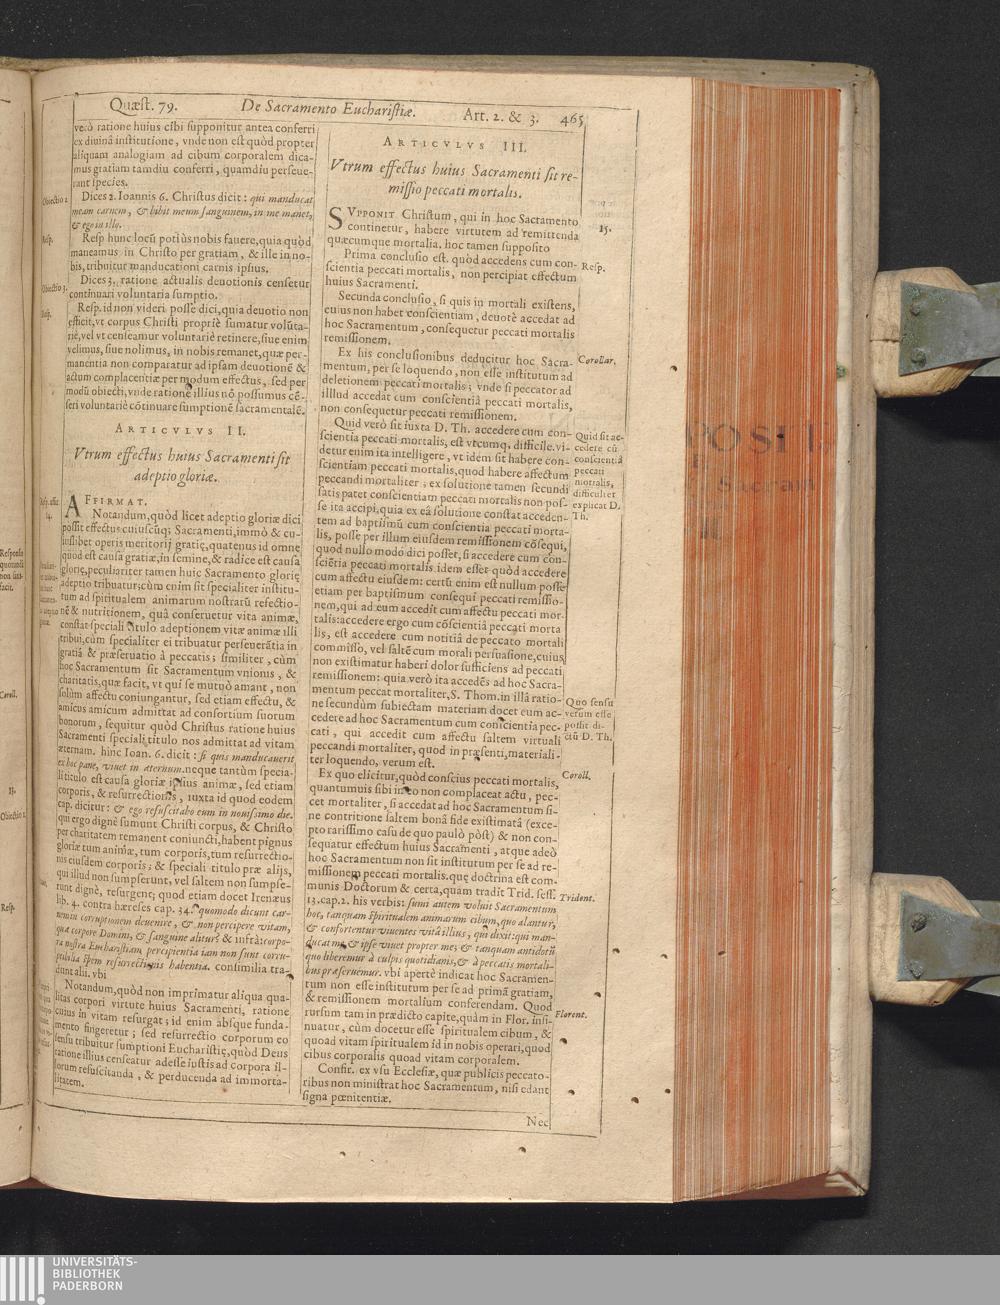 Quæst. 79. De Sacramento Eucharistiæ. Art. 2. & 3. 465
verò ratione huius cibi supponitur antea conferri
ex diuinâ institutione, vnde non est quòd propter
aliquam analogiam ad cibum corporalem dica-
mus gratiam tamdiu conferri, quamdiu perseue-
rant species.
Obiectio 2.
Dices 2. Ioannis 6. Christus dicit: qui manducat
meam carnem, & bibit meum sanguinem, in me manet,
& ego in illo.
Resp.
Resp hunc locū potiùs nobis fauere, quia quòd
maneamus in Christo per gratiam, & ille in no-
bis, tribuitur manducationi carnis ipsius.
Obiectio 3.
Dices 3. ratione actualis deuotionis censetur
continuari voluntaria sumptio.
Resp.
Resp. id non videri posse dici, quia deuotio non
efficit, vt corpus Christi propriè sumatur volūta-
riè, vel vt censeamur voluntariè retinere, siue enim
velimus, siue nolimus, in nobis remanet, quæ per-
manentia non comparatur ad ipsam deuotionē &
actum complacentiæ per modum effectus, sed per
modū obiecti, vnde ratione illius nō possumus cē-
seri voluntariè cōtinuare sumptionē sacramentalē.
ARTICVLVS II.
Vtrum effectus huius Sacramenti sit
adeptio gloriæ.
AFFIRMAT.
14.
Notandum, quòd licet adeptio gloriæ dici
possit effectus cuiuscūq; Sacramenti, immò & cu-
iuslibet operis meritorij gratię, quatenus id omne
quod est causa gratiæ, in semine, & radice est causa
glorię, peculiariter tamen huic Sacramento glorię
adeptio tribuatur; cùm enim sit specialiter institu-
tum ad spiritualem animarum nostrarū refectio-
nē & nutritionem, quâ conseruetur vita animæ,
constat speciali titulo adeptionem vitæ animæ illi
tribui, cùm specialiter ei tribuatur perseuerātia in
gratiâ & præseruatio à peccatis; similiter, cùm
hoc Sacramentum sit Sacramentum vnionis, &
charitatis, quæ facit, vt qui se mutuò amant, non
solùm affectu coniungantur, sed etiam effectu, &
amicus amicum admittat ad consortium suorum
bonorum, sequitur quòd Christus ratione huius
Sacramenti speciali titulo nos admittat ad vitam
æternam. hinc Ioan. 6. dicit: si quis manducauerit
ex hoc pane, viuet in æternum. neque tantùm specia-
li titulo est causa gloriæ ipsius animæ, sed etiam
corporis, & resurrectionis, iuxta id quod eodem
cap. dicitur: & ego resuscitabo eum in nouissimo die.
qui ergo dignè sumunt Christi corpus, & Christo
per charitatem remanent coniuncti, habent pignus
gloriæ tum animæ, tum corporis, tum resurrectio-
nis eiusdem corporis; & speciali titulo præ alijs,
qui illud non sumpserunt, vel saltem non sumpse-
runt dignè, resurgent; quod etiam docet Irenæus
lib. 4. contra hæreses cap. 34. quomodo dicunt car-
nem in corruptionem deuenire, & non percipere vitam,
quæ corpore Domini, & sanguine alitur? & infrà: corpo-
ra nostra Eucharistiam percipientia iam non sunt corru-
ptibilia spem resurrectionis habentia. consimilia tra-
dunt alii. vbi
Notandum, quòd non imprimatur aliqua qua-
litas corpori virtute huius Sacramenti, ratione
cuius in vitam resurgat; id enim absque funda-
mento fingeretur; sed resurrectio corporum eo
sensu tribuitur sumptioni Eucharistię, quòd Deus
ratione illius censeatur adesse iustis ad corpora il-
lorum resuscitanda, & perducenda ad immorta-
litatem.
ARTICVLVS III.
Vtrum effectus huius Sacramenti sit re-
missio peccati mortalis.
SVPPONIT Christum, qui in hoc Sacramento
continetur, habere virtutem ad remittenda
15.
quæcumque mortalia. hoc tamen supposito
Prima conclusio est. quòd accedens cum con-
Resp.
scientia peccati mortalis, non percipiat effectum
huius Sacramenti.
Secunda conclusio, si quis in mortali existens,
cuius non habet conscientiam, deuotè accedat ad
hoc Sacramentum, consequetur peccati mortalis
remissionem.
Ex his conclusionibus deducitur hoc Sacra-
Corollar.
mentum, per se loquendo, non esse institutum ad
deletionem peccati mortalis; vnde si peccator ad
illlud accedat cum conscientiâ peccati mortalis,
non consequetur peccati remissionem.
Quid verò sit iuxta D. Th. accedere cum con-
scientia peccati mortalis, est vtcumq. difficile. vi-
detur enim ita intelligere, vt idem sit habere con-
scientiam peccati mortalis, quod habere affectum
peccandi mortaliter; ex solutione tamen secundi
satis patet conscientiam peccati mortalis non pos-
se ita accipi, quia ex eâ solutione constat acceden-
tem ad baptismū cum conscientia peccati morta-
lis, posse per illum eiusdem remissionem cōsequi,
quod nullo modo dici posset, si accedere cum con-
sciētia peccati mortalis idem esset quòd accedere
cum affectu eiusdem: certū enim est nullum posse
etiam per baptismum consequi peccati remissio-
nem, qui ad eum accedit cum affectu peccati mor-
talis: accedere ergo cum cōscientiâ peccati morta
lis, est accedere cum notitiâ de peccato mortali
commisso, vel saltē cum morali persuasione, cuius
non existimatur haberi dolor sufficiens ad peccati
remissionem: quia verò ita accedēs ad hoc Sacra-
mentum peccat mortaliter, S. Thom. in illâ ratio-
ne secundùm subiectam materiam docet eum ac-
cedere ad hoc Sacramentum cum conscientia pec-
cati, qui accedit cum affectu saltem virtuali
peccandi mortaliter, quod in præsenti, materiali-
ter loquendo, verum est.
Quid sit ac-
cedere cū
conscientiâ
peccati
mortalis,
difficulter
explicat D.
Th.
Quo sensu
verum esse
possit di-
ctū D. Th.
Coroll.
Ex quo elicitur, quòd conscius peccati mortalis,
quantumuis sibi in eo non complaceat actu, pec-
cet mortaliter, si accedat ad hoc Sacramentum si-
ne contritione saltem bonâ fide existimatâ (exce-
pto rarissimo casu de quo paulò pòst) & non con-
sequatur effectum huius Sacramenti, atque adeò
hoc Sacramentum non sit institutum per se ad re-
missionem peccati mortalis. que doctrina est com-
munis Doctorum & certa, quàm tradit Trid. sess.
Trident.
13. cap. 2. his verbis: sumi autem voluit Sacramentum
hoc, tanquam spiritualem animarum cibum, quo alantur,
& confortentur viuentes vitâ illius, qui dixit: qui man-
ducat me, & ipse viuet propter me; & tanquam antidotū
quo liberemur à culpis quotidianis, & à peccatis mortali-
bus præseruemur. vbi apertè indicat hoc Sacramen-
tum non esse institutum per se ad primā gratiam,
& remissionem mortalium conferendam. Quod
rursum tam in prædicto capite, quàm in Flor. insi-
Florent.
nuatur, cùm docetur esse spiritualem cibum, &
quoad vitam spiritualem id in nobis operari, quod
cibus corporalis quoad vitam corporalem.
Confir. ex vsu Ecclesiæ, quæ publicis peccato-
ribus non ministrat hoc Sacramentum, nisi edant
signa pœnitentiæ.
Nec
Responsio
facit.
Coroll.
13.
Obiectio 1.
Resp.
UNIVERSITÄTS-
BIBLIOTHEK
PADERBORN